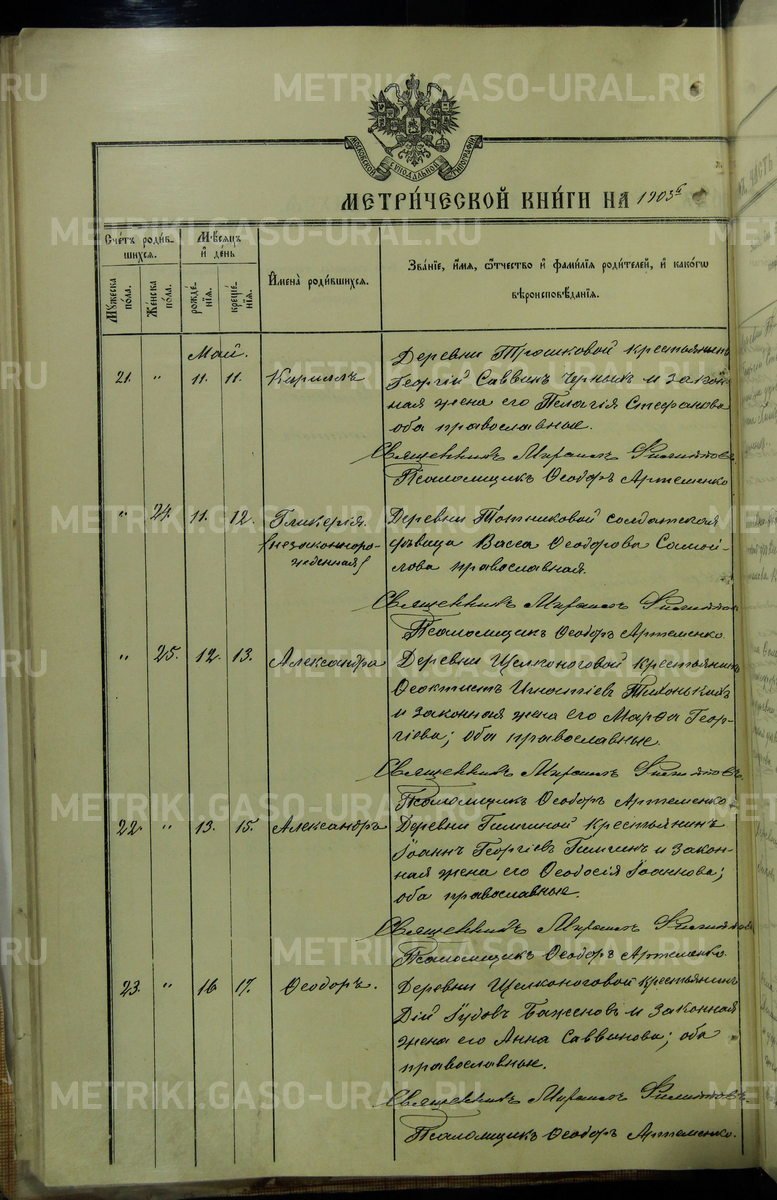 METRIKI.GASO-URAL.RU
МОСКОВСКОЙ СѴНОДАЛЬНОЙ ТИПОГРАФІИ
МЕТРИ́ЧЕСКОЙ КНИ́ГИ НА 1903 г.
Сче́тъ роди́вшихся.
Мꙋжеска по́ла.
Же́нска по́ла.
Мѣсяцъ и҆ де́нь
рожде́нїѧ.
креще́нїѧ.
И҆мена̀ роди́вшихсѧ.
Зва́нїе, и҆́мѧ, ѻ҆́тчество и҆ фами́лїѧ роди́телей, и҆ како́гѡ
вѣроисповѣ́данїѧ.
Май.
21. " 11. 11. Кириллъ
Деревни Трошковой крестьянинъ
Георгій Саввинъ Черных и закон-
ная жена его Пелагія Стефанова
оба православные.
Священникъ
Псаломщикъ Ѳеодоръ Артеменко
" 24. 11. 12. Гликерія
(незаконноро-
жденная)
Деревни солдатская
дѣвица Васса Ѳеодорова Самой-
лова православная.
Священникъ
Псаломщикъ Ѳеодоръ Артеменко.
" 25. 12. 13. Александра
Деревни Щелконоговой крестьянинъ
Ѳеоктистъ
и законная жена его Марѳа Геор-
гіева; оба православные.
Священникъ
Псаломщикъ Ѳеодоръ Артеменко.
22. " 13. 15. Александръ
Деревни крестьянинъ
Іоаннъ Георгіевъ и закон-
ная жена его Ѳеодосія Іоаннова;
оба православные.
Священникъ
Псаломщикъ Ѳеодоръ Артеменко.
23. " 16. 17. Ѳеодоръ.
Деревни Щелконоговой крестьянинъ
Дій Іудовъ Баженовъ и законная
жена его Анна Саввинова; оба
православные.
Священникъ
Псаломщикъ Ѳеодоръ Артеменко.